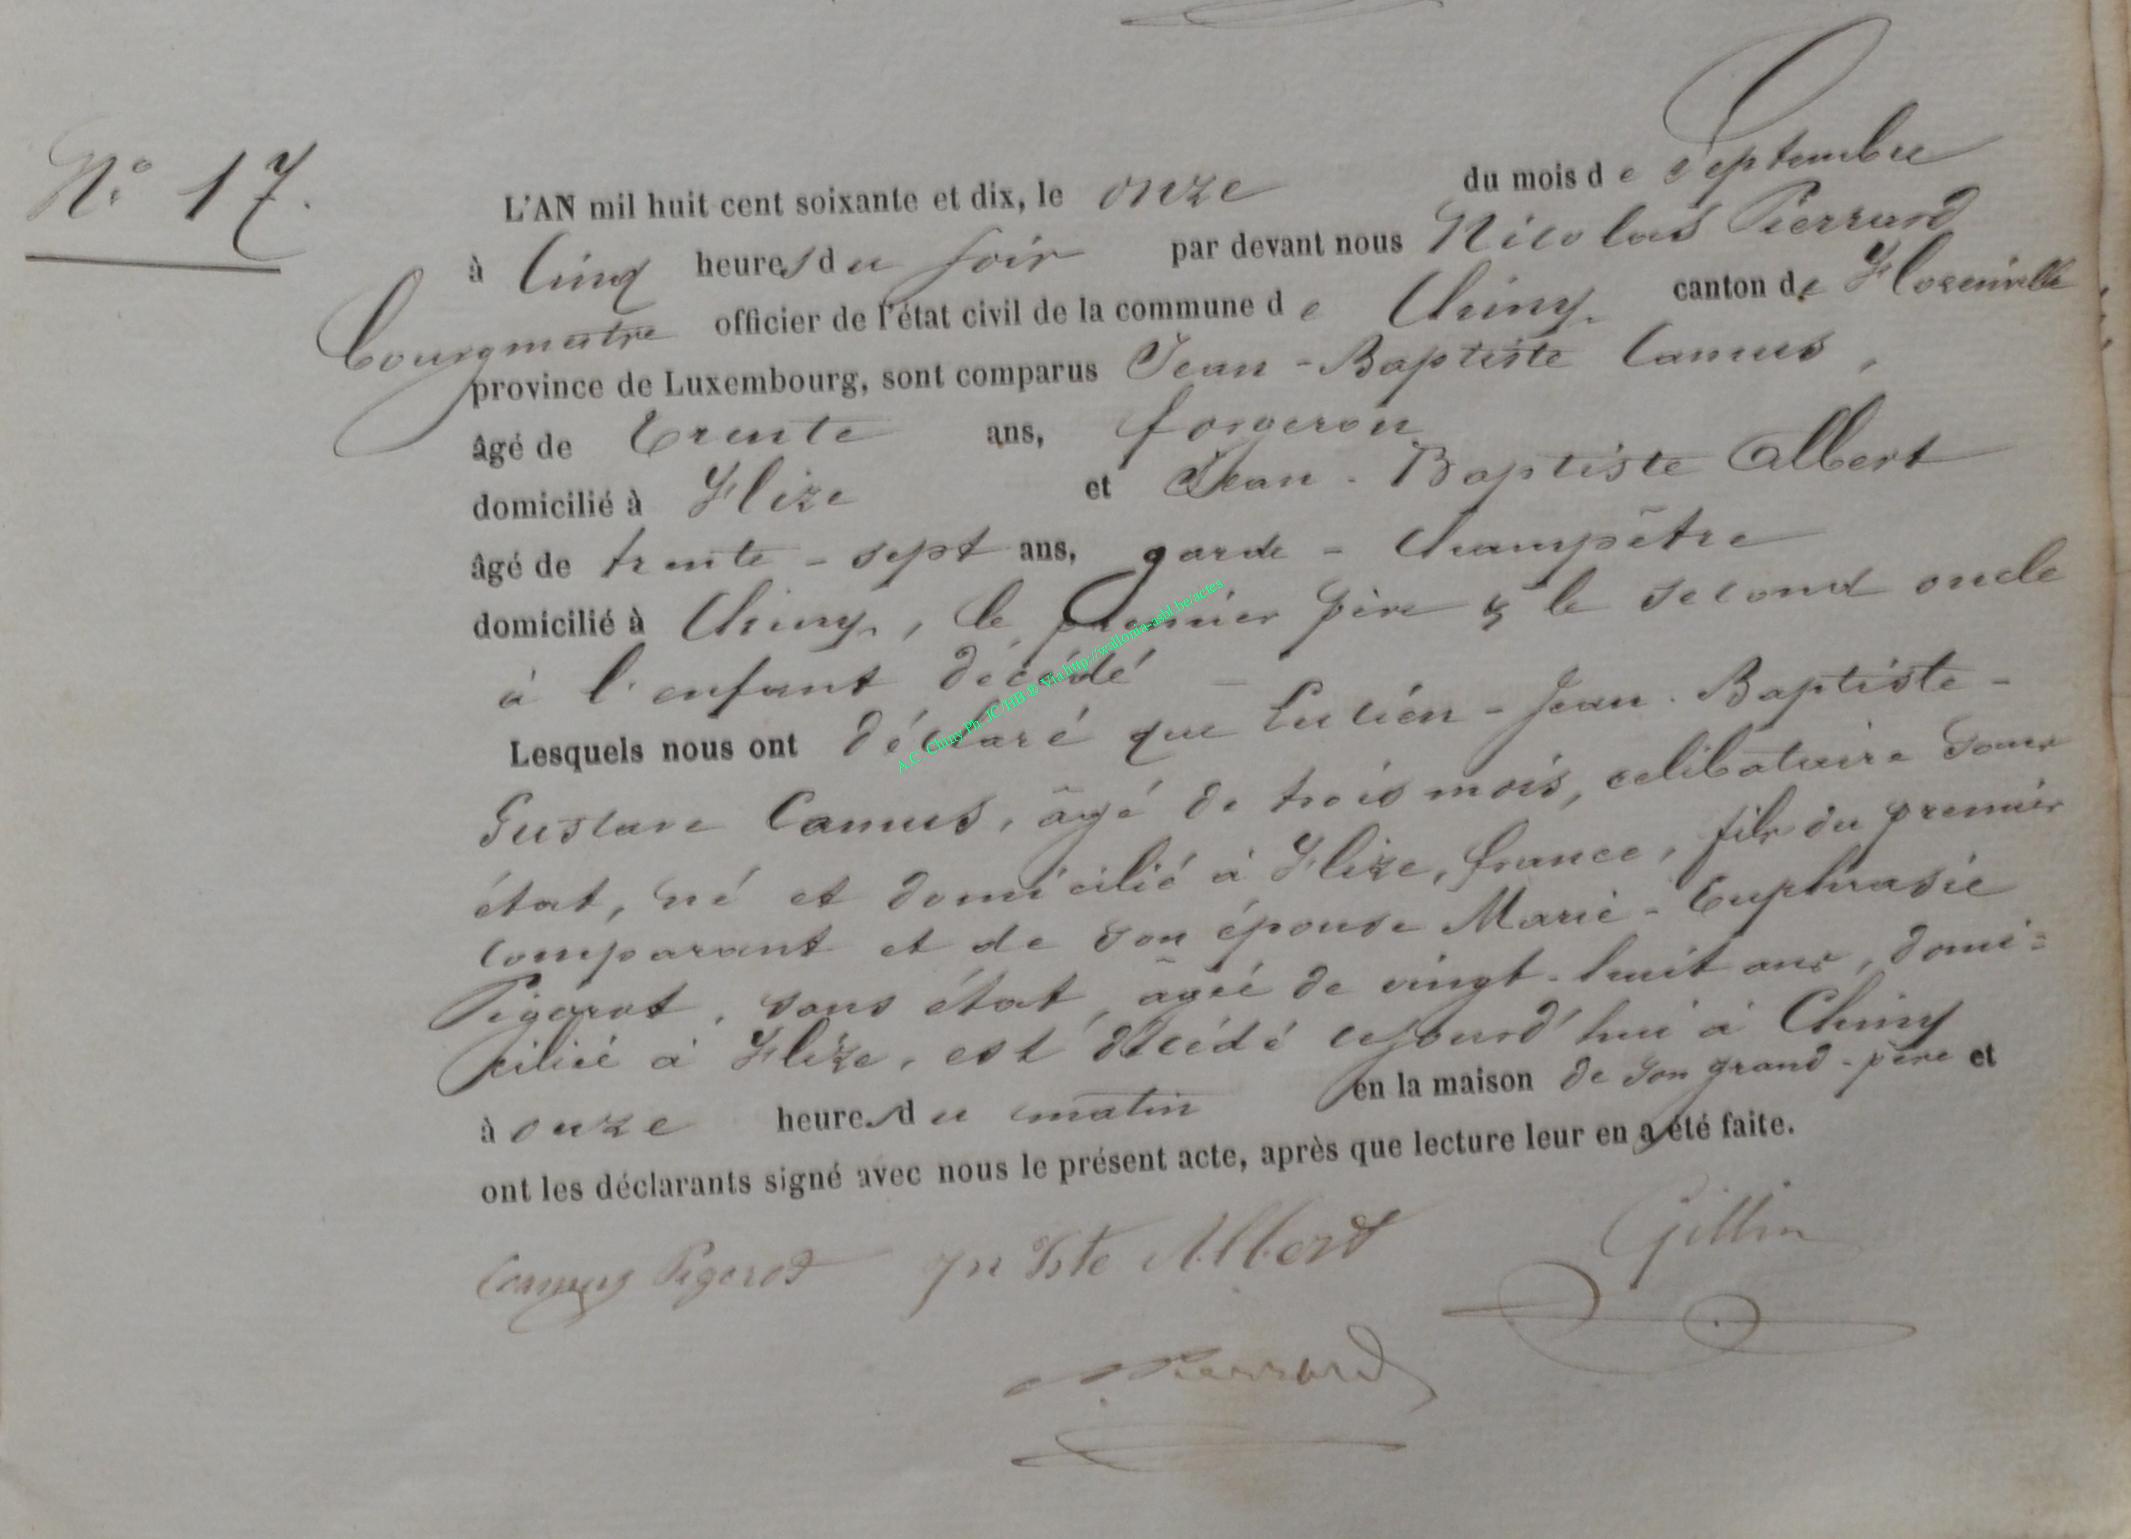 N° 17.
L'AN mil huit cent soixante et dix, le onze du mois de Septembre
à cinq heures du soir par devant nous Nicolas Pierrard
bourgmestre officier de l'état civil de la commune de Chiny, canton de Florenville
province de Luxembourg, sont comparus Jean-Baptiste Camus,
âgé de trente ans, forgeron
domicilié à Flize et Jean-Baptiste Albert
âgé de trente-sept ans, garde-champêtre
domicilié à Chiny, le premier père & le second oncle
à l'enfant décédé -
Lesquels nous ont déclaré que Lucien-Jean-Baptiste-
Gustave Camus, âgé de trois mois, celibataire sans
état, né et domicilié à Flize, france, fils du premier
comparant et de son épouse Marie-Euphrasie
Pigerot, sans état, âgée de vingt-huit ans, domi=
ciliée à Flize, est décédé cejourd'hui à Chiny
à onze heures du matin en la maison de son grand-père et
ont les déclarants signé avec nous le présent acte, après que lecture leur en a été faite.
Camus Pigerot Jn Bte Albert Gillin
Pierrard
A.C Chiny Ph. JC/HB © Via http://wallonia-asbl.be/actes